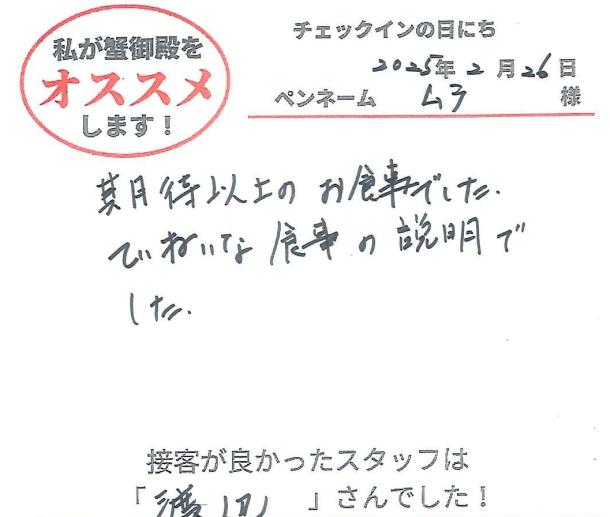 私が蟹御殿を
オススメ
します！
チェックインの日にち
2025年2月26日
ペンネーム ムラ 様
期待以上のお食事でした.
ていねいな食事の説明で
した.
接客が良かったスタッフは
「渡辺」さんでした！